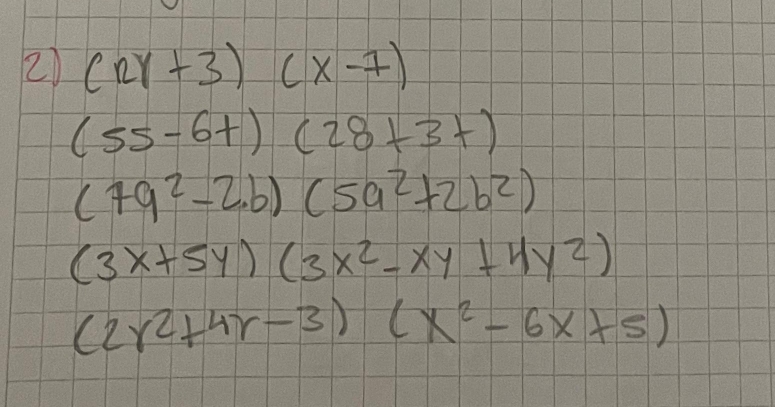 2) (2x+3) (x-7)
(5s-6t) (28+3t)
(7a²-2b) (5a²+2b²)
(3x+5y) (3x²-xy+4y²)
(2r²+4r-3) (x²-6x+5)